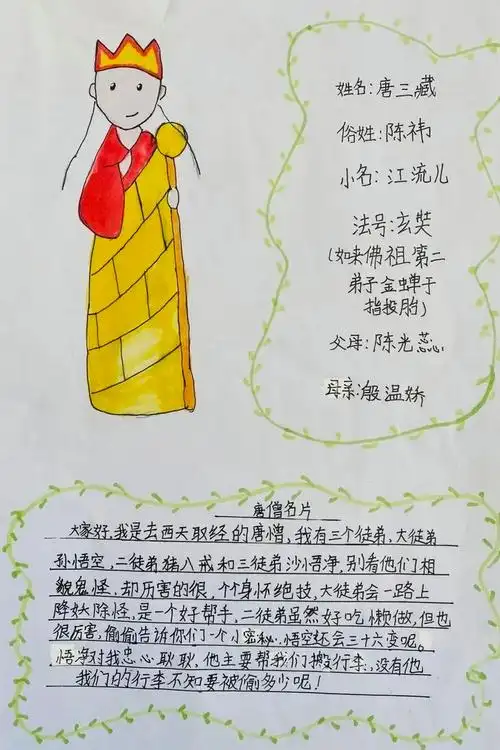 姓名:唐三藏
俗姓:陈祎
小名:江流儿
法号:玄奘
(如来佛祖第二
弟子金蝉子
指投胎)
父母:陈光蕊
母亲:殷温娇
唐僧名片
大家好,我是去西天取经的唐僧,我有三个徒弟,大徒弟
孙悟空,二徒弟猪八戒和三徒弟沙悟净,别看他们相
貌鬼怪,却厉害的很,个个身怀绝技,大徒弟会一路上
降妖除怪,是一个好帮手,二徒弟虽然好吃懒做,但也
很厉害,偷偷告诉你们一个小秘秘,悟空还会三十六变呢。
悟净对我忠心耿耿,他主要帮我们搬行李,没有他
我们的行李不知要被偷多少呢!